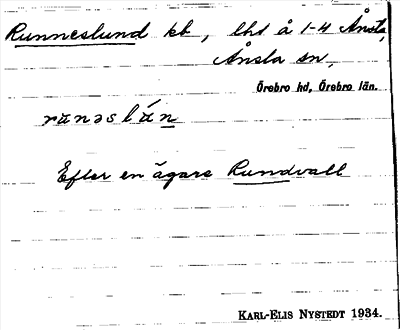 Runneslund kb, lht å 1-4 Ånsta,
Ånsta sn,
Örebro hd, Örebro län.
Efter en ägare Rundvall
KARL-ELIS NYSTEDT 1934.